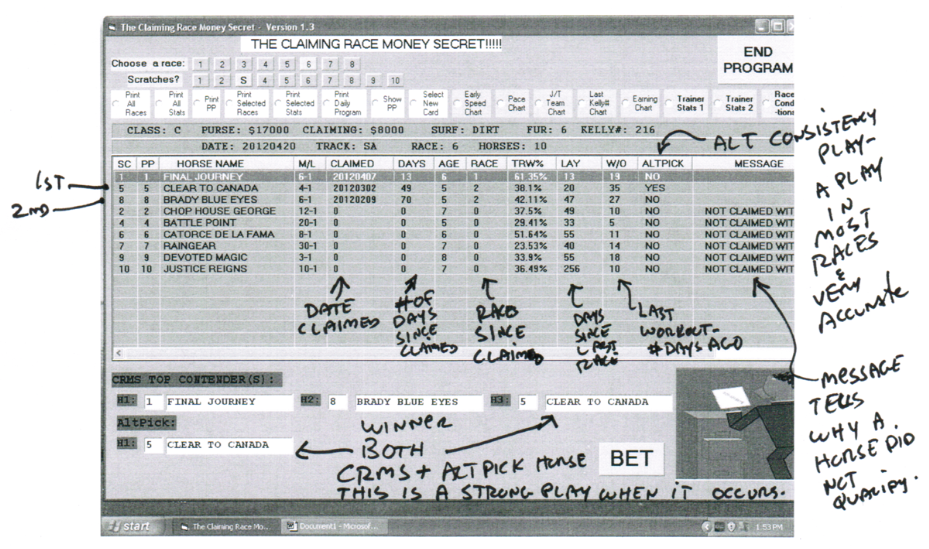 The Claiming Race Money Secret - Version 1.3
THE CLAIMING RACE MONEY SECRET!!!!!
END PROGRAM
Choose a race: 1 2 3 4 5 6 7 8
Scratches? 1 2 S 4 5 6 7 8 9 10
Print All Races
Print All Stats
Print PP
Print Selected Races
Print Selected Stats
Print Daily Program
Show PP
Select New Card
Early Speed Chart
Pace Chart
J/T Team Chart
Last Kelly# Chart
Earning Chart
Trainer Stats 1
Trainer Stats 2
Race Cond -tions
CLASS: C PURSE: $17000 CLAIMING: $8000 SURF: DIRT FUR: 6 KELLY#: 216
DATE: 20120420 TRACK: SA RACE: 6 HORSES: 10
SC PP HORSE NAME M/L CLAIMED DAYS AGE RACE TRW% LAY W/O ALTPICK MESSAGE
1 1 FINAL JOURNEY 6-1 20120407 13 6 1 61.35% 13 19 NO
5 5 CLEAR TO CANADA 4-1 20120302 49 5 2 38.1% 20 35 YES
8 8 BRADY BLUE EYES 6-1 20120209 70 5 2 42.11% 47 27 NO
2 2 CHOP HOUSE GEORGE 12-1 0 0 7 0 37.5% 49 10 NO NOT CLAIMED WIT
4 4 BATTLE POINT 20-1 0 0 5 0 29.41% 33 5 NO NOT CLAIMED WIT
6 6 CATORCE DE LA FAMA 8-1 0 0 6 0 51.64% 55 11 NO NOT CLAIMED WIT
7 7 RAINGEAR 30-1 0 0 7 0 23.53% 40 14 NO NOT CLAIMED WIT
9 9 DEVOTED MAGIC 3-1 0 0 8 0 33.9% 55 18 NO NOT CLAIMED WIT
10 10 JUSTICE REIGNS 10-1 0 0 7 0 36.49% 256 10 NO NOT CLAIMED WIT
1ST
2ND
ALT CONSISTENCY
PLAY-
A PLAY
IN
MOST
RACES
&
VERY
ACCURATE
DATE
CLAIMED
# OF
DAYS
SINCE
CLAIMED
RACES
SINCE
CLAIMED
DAYS
SINCE
LAST
RACE
LAST
WORKOUT-
# DAYS AGO
MESSAGE
TELLS
WHY A
HORSE DID
NOT
QUALIFY.
CRMS TOP CONTENDER(S):
H1: 1 FINAL JOURNEY H2: 8 BRADY BLUE EYES H3: 5 CLEAR TO CANADA
AltPick:
H1: 5 CLEAR TO CANADA
WINNER
BOTH
CRMS + ALT PICK HORSE
THIS IS A STRONG PLAY WHEN IT OCCURS.
BET
start
The Claiming Race Mo...
Document1 - Microsof...
1:53 PM